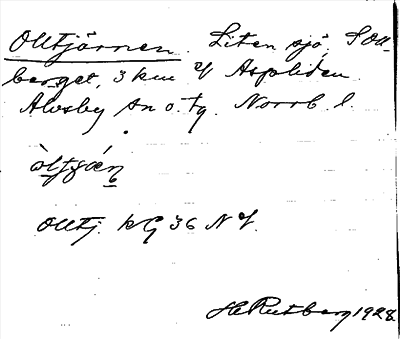 Olltjärnen. Liten sjö, S Oll-
berget, 3 km V Aspliden.
Älvsby sn o. tg. Norrb. l.
Olltj. kG 36 NV.
H. Rutberg 1928